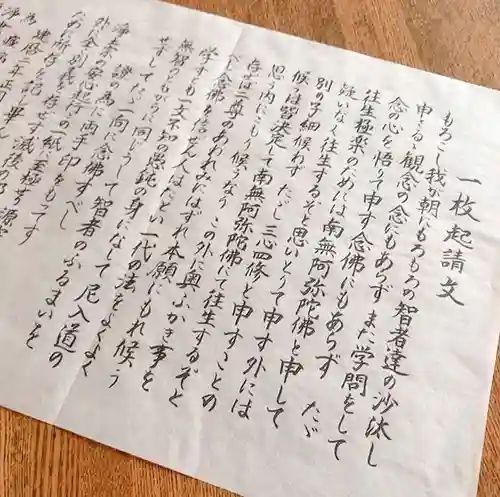 一枚起請文
もろこし我が朝にもろもろの智者達の沙汰し
申さるる観念の念にもあらず また学問をして
念の心を悟りて申す念佛にもあらず ただ
往生極楽のためには南無阿弥陀佛と申して
疑いなく往生するぞと思いとりて申す外には
別の子細候わず ただし三心四修と申すことの
候は皆決定して南無阿弥陀佛にて往生するぞと
思う内にこもり候うなり この外に奥ふかき事を
存ぜば二尊のあわれみにはずれ本願にもれ候う
べし 念佛を信ぜん人はたとい一代の法をよくよく
学すとも一文不知の愚鈍の身になして尼入道の
無智のともがらに同じうして智者のふるまいを
せずしてただ一向に念佛すべし
證の為に両手印をもてす
浄土宗の安心起行この一紙に至極せり 源空が所存
外に全く別義を存ぜず 滅後の邪
なり 所存を記し畢んぬ
建暦二年正月